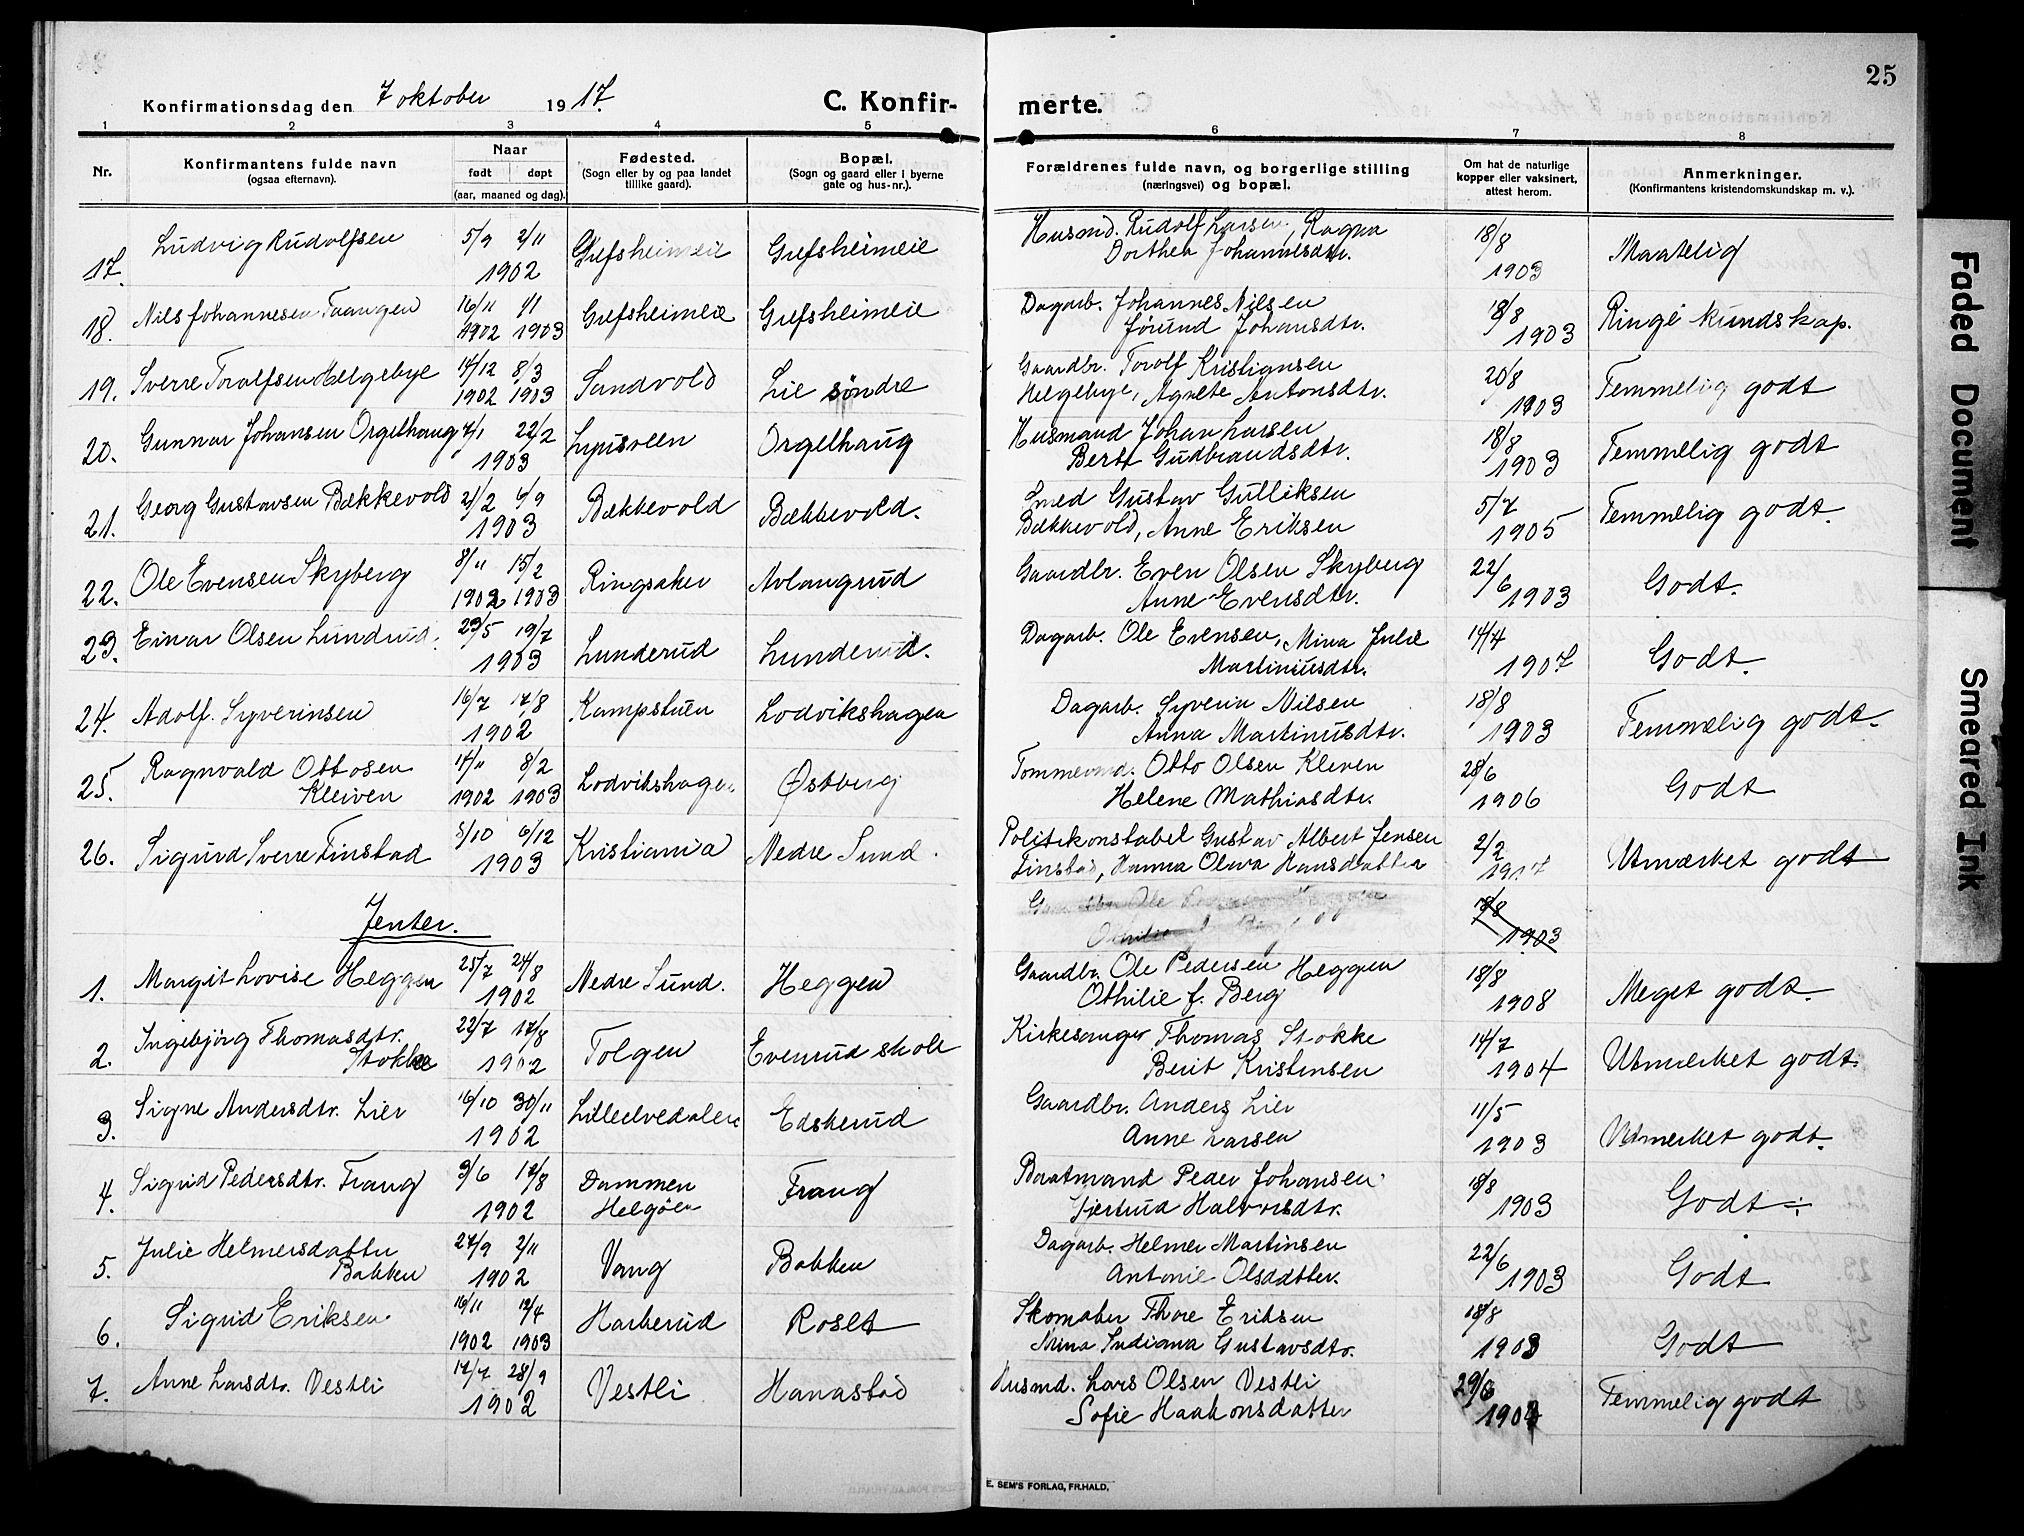 25
Konfirmationsdag den 7 oktober 1917.
C. Konfirmerte.
1 2 3 4 5 6 7 8
Nr.
Konfirmantens fulde navn
(ogsaa efternavn).
Naar
født døpt
(aar, maaned og dag).
Fødested.
(Sogn eller by og paa landet
tillike gaard).
Bopæl.
(Sogn og gaard eller i byerne
gate og hus-nr.).
Forældrenes fulde navn, og borgerlige stilling
(næringsvei) og bopæl.
Om hat de naturlige
kopper eller vaksinert,
attest herom.
Anmerkninger.
(Konfirmantens kristendomskundskap m. v.).
17. Ludvig Rudolfsen 5/9 2/11 1902 Grefsheimeie Grefsheimeie Husmd. Rudolf Larsen, Ragna
Dorthea Johannesdtr. 18/8 1903 Maatelig
18. Nils Johannesen Taangen 16/11 1902 1/1 1903 Grefsheimeie Grefsheimeie Dagarb. Johannes Nilsen
Jørund Johansdtr. 18/8 1903 Ringe kundskap.
19. Sverre Torolfsen Helgebye 14/12 1902 8/3 1903 Sandvold Lie søndre Gaardbr. Torolf Kristiansen
Helgebye, Agnete Antonsdtr. 20/8 1903 Temmelig godt
20. Gunnar Johansen Orgelhaug 4/1 22/2 1903 Lysveen Orgelhaug Husmand Johan Larsen
Berte Gudbrandsdtr. 18/8 1903 Temmelig godt
21. Georg Gustavsen Bækkevold 21/2 6/9 1903 Bækkevold Bækkevold. Smed Gustav Gulliksen
Bækkevold, Anne Eriksen 5/7 1905 Temmelig godt.
22. Ole Evensen Skyberg 8/11 1902 15/2 1903 Ringsaker Avlangrud Gaardbr. Even Olsen Skyberg
Anne Evensdtr. 22/6 1903 Godt.
23. Einar Olsen Lundrud. 23/5 19/7 1903 Lunderud Lunderud. Dagarb. Ole Evensen, Mina Julie
Martiniusdtr. 14/7 1907 Godt.
24. Adolf Syverinsen 16/7 17/8 1902 Kampstuen Lodvikshagen Dagarb. Syverin Nilsen
Anna Martinusdtr. 18/8 1903 Temmelig godt.
25. Ragnvald Ottosen
Kleiven 14/11 1902 8/2 1903 Lodvikshagen Østberg Tømmermd. Otto Olsen Kleven
Helene Mathiasdtr. 28/6 1906 Godt
26. Sigurd Sverre Finstad 5/10 6/12 1903 Kristiania Nedre Sund. Politikonstabel Gustav Albert Jensen
Finstad, Hanna Oliva Hansdatter 2/2 1917 Utmerket godt
18/8 1903
Jenter.
1. Margit Lovise Heggen 25/7 24/8 1902 Nedre Sund. Heggen Gaardbr. Ole Pedersen Heggen
Othilie f. Berg 18/8 1908 Meget godt.
2. Ingebjørg Thomasdtr.
Stokke 22/7 17/8 1902 Tolgen Evenrud skole Kirkesanger Thomas Stokke
Berit Kristensen 14/7 1904 Utmerket godt.
3. Signe Andersdtr. Lier 16/10 30/11 1902 Lilleelvedalen Edskerud Gaardbr. Anders Lier
Anne Larsen 11/5 1903 Utmerket godt.
4. Sigrid Pedersdtr. Frang 3/6 17/8 1902 Dammen
Helgøen Frang Baatmand Peder Johansen
Gjertrud Halvorsdtr. 18/8 1903 Godt
5. Julie Helmersdatter
Bakken 27/9 2/11 1902 Vang Bakken Dagarb. Helmer Martinsen
Antonie Olsdatter. 22/6 1903 Godt
6. Sigrid Eriksen 16/11 1902 12/4 1903 Harkerud Roset Skomaker Thore Eriksen
Mina Indiana Gustavsdtr. 18/8 1903 Godt
7. Anne Larsdtr. Vestli 17/7 28/9 1902 Vestli Hanastad Husmd. Lars Olsen Vestli
Sofie Haakonsdatter 29/6 1904 Temmelig godt
E. SEM'S FORLAG, FR.HALD.
Faded Document
Smeared Ink